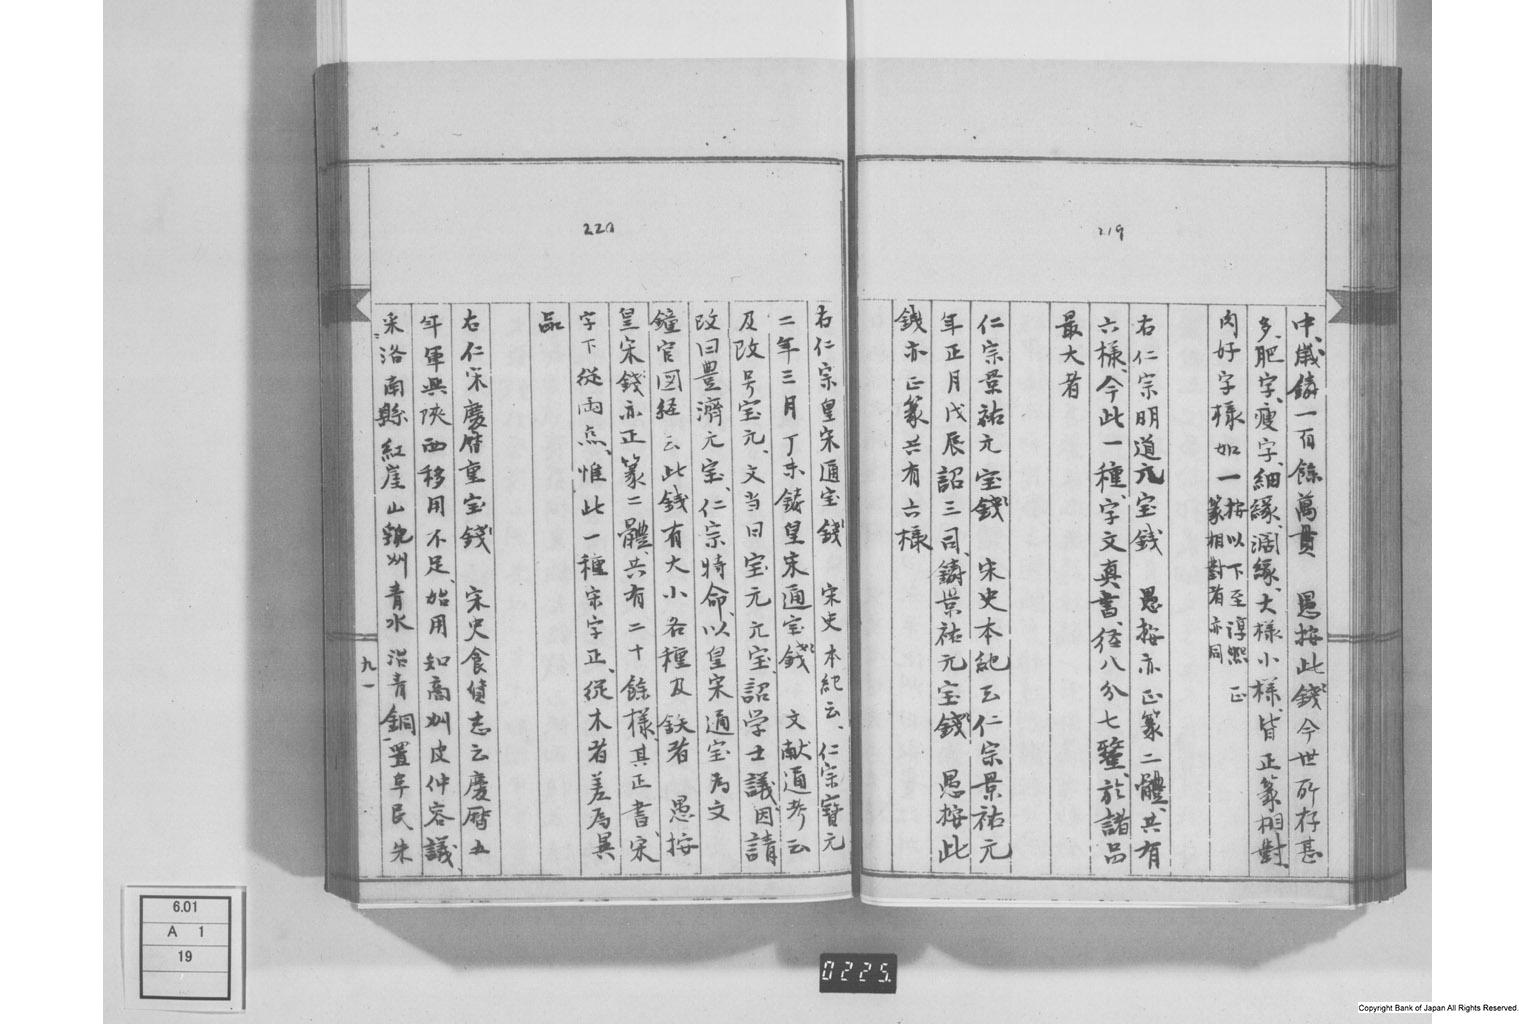 219
中、歲鑄一百餘萬貫　愚按此錢今世所存甚
多、肥字、瘦字、細緣、濶緣、大樣、小樣、皆正篆相對
肉好字樣如一按以下至淳熙正
篆相對者亦同
右仁宗明道元宝錢　愚按亦正篆二體、共有
六樣、今此一種、字文真書、径八分七釐、於諸品
最大者
仁宗景祐元宝錢　宋史本紀云仁宗景祐元
年正月戊辰詔三司、鑄景祐元宝錢　愚按此
錢亦正篆共有六樣
220
右仁宗皇宋通宝錢　宋史本紀云、仁宗寶元
二年三月丁未鑄皇宋通宝錢　文献通考云
及改号宝元、文当曰宝元元宝、詔学士議、因請
改曰豊濟元宝、仁宗特命、以皇宋通宝為文
鐘官図経云此錢有大小各種及鉄者　愚按
皇宋錢亦正篆二體、共有二十餘樣、其正書、宋
字下從両点、惟此一種宋字正、從木者差為異
品
右仁宋慶暦重宝錢　宋史食貨志云慶暦五
年軍興陝西移用不足、始用知商州皮仲容議、
采洛南縣紅崖山虢州青水冶青銅、置阜民朱
九一
6.01
A 1
19
0225.
Copyright Bank of Japan All Rights Reserved.